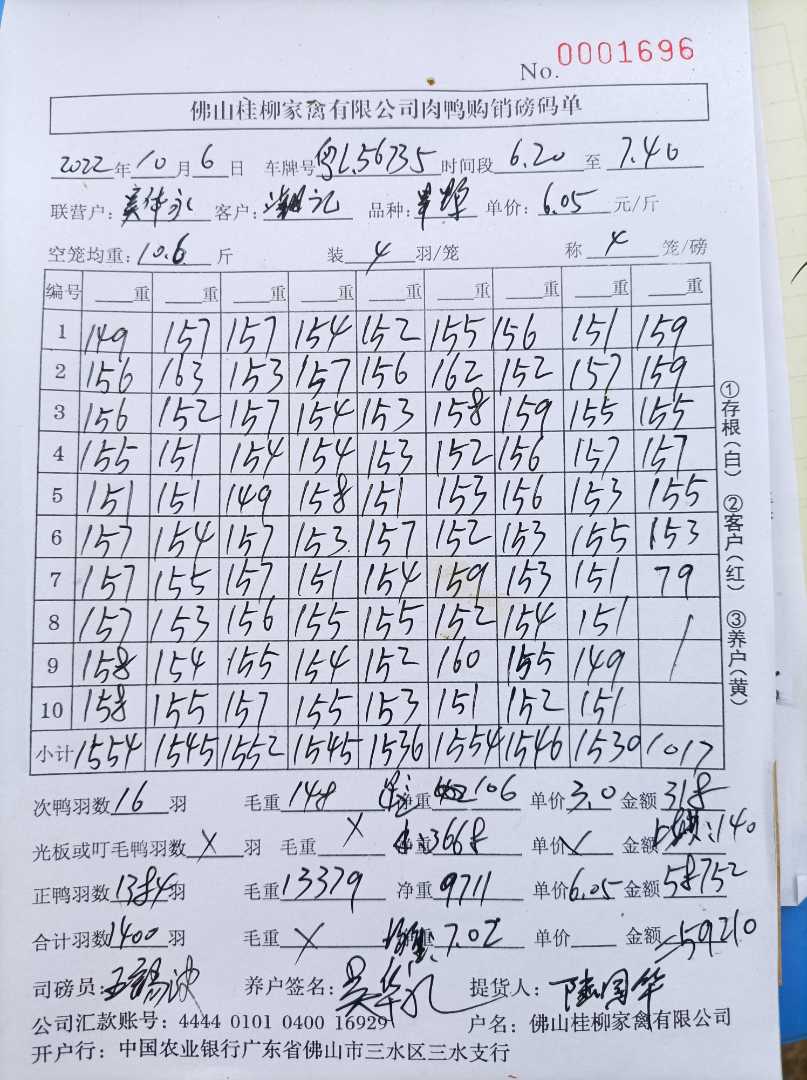 No. 0001696
佛山桂柳家禽有限公司肉鸭购销磅码单
2022年10月6日 车牌号粤L.56735 时间段6.20至7.40
联营户: 吴华永 客户: 潮记 品种: 单价: 6.05元/斤
空笼均重: 10.6斤 装4羽/笼 称4笼/磅
编号 重 重 重 重 重 重 重 重 重
1 149 157 157 154 152 155 156 151 159
2 156 163 153 157 156 162 152 157 159
3 156 152 157 154 153 158 159 155 155
4 155 151 154 154 153 152 156 157 157
5 151 151 149 158 151 153 156 153 155
6 157 154 157 153 157 152 153 155 153
7 157 155 157 151 154 159 153 151 79
8 157 153 156 155 155 152 154 151
9 158 154 155 154 152 160 155 149
10 158 155 157 155 153 151 152 151
小计 1554 1545 1552 1545 1536 1554 1546 1530 1017
①存根(白) ②客户(红) ③养户(黄)
次鸭羽数16羽 毛重148 净重106 单价3.0 金额318
光板或叮毛鸭羽数×羽 毛重× 净重3668 单价 金额:140
正鸭羽数1384羽 毛重13379 净重9711 单价6.05 金额58752
合计羽数1400羽 毛重× 7.02 单价 金额59210
司磅员: 养户签名: 吴华永 提货人: 陆国华
公司汇款账号: 4444 0101 0400 16929 户名: 佛山桂柳家禽有限公司
开户行: 中国农业银行广东省佛山市三水区三水支行